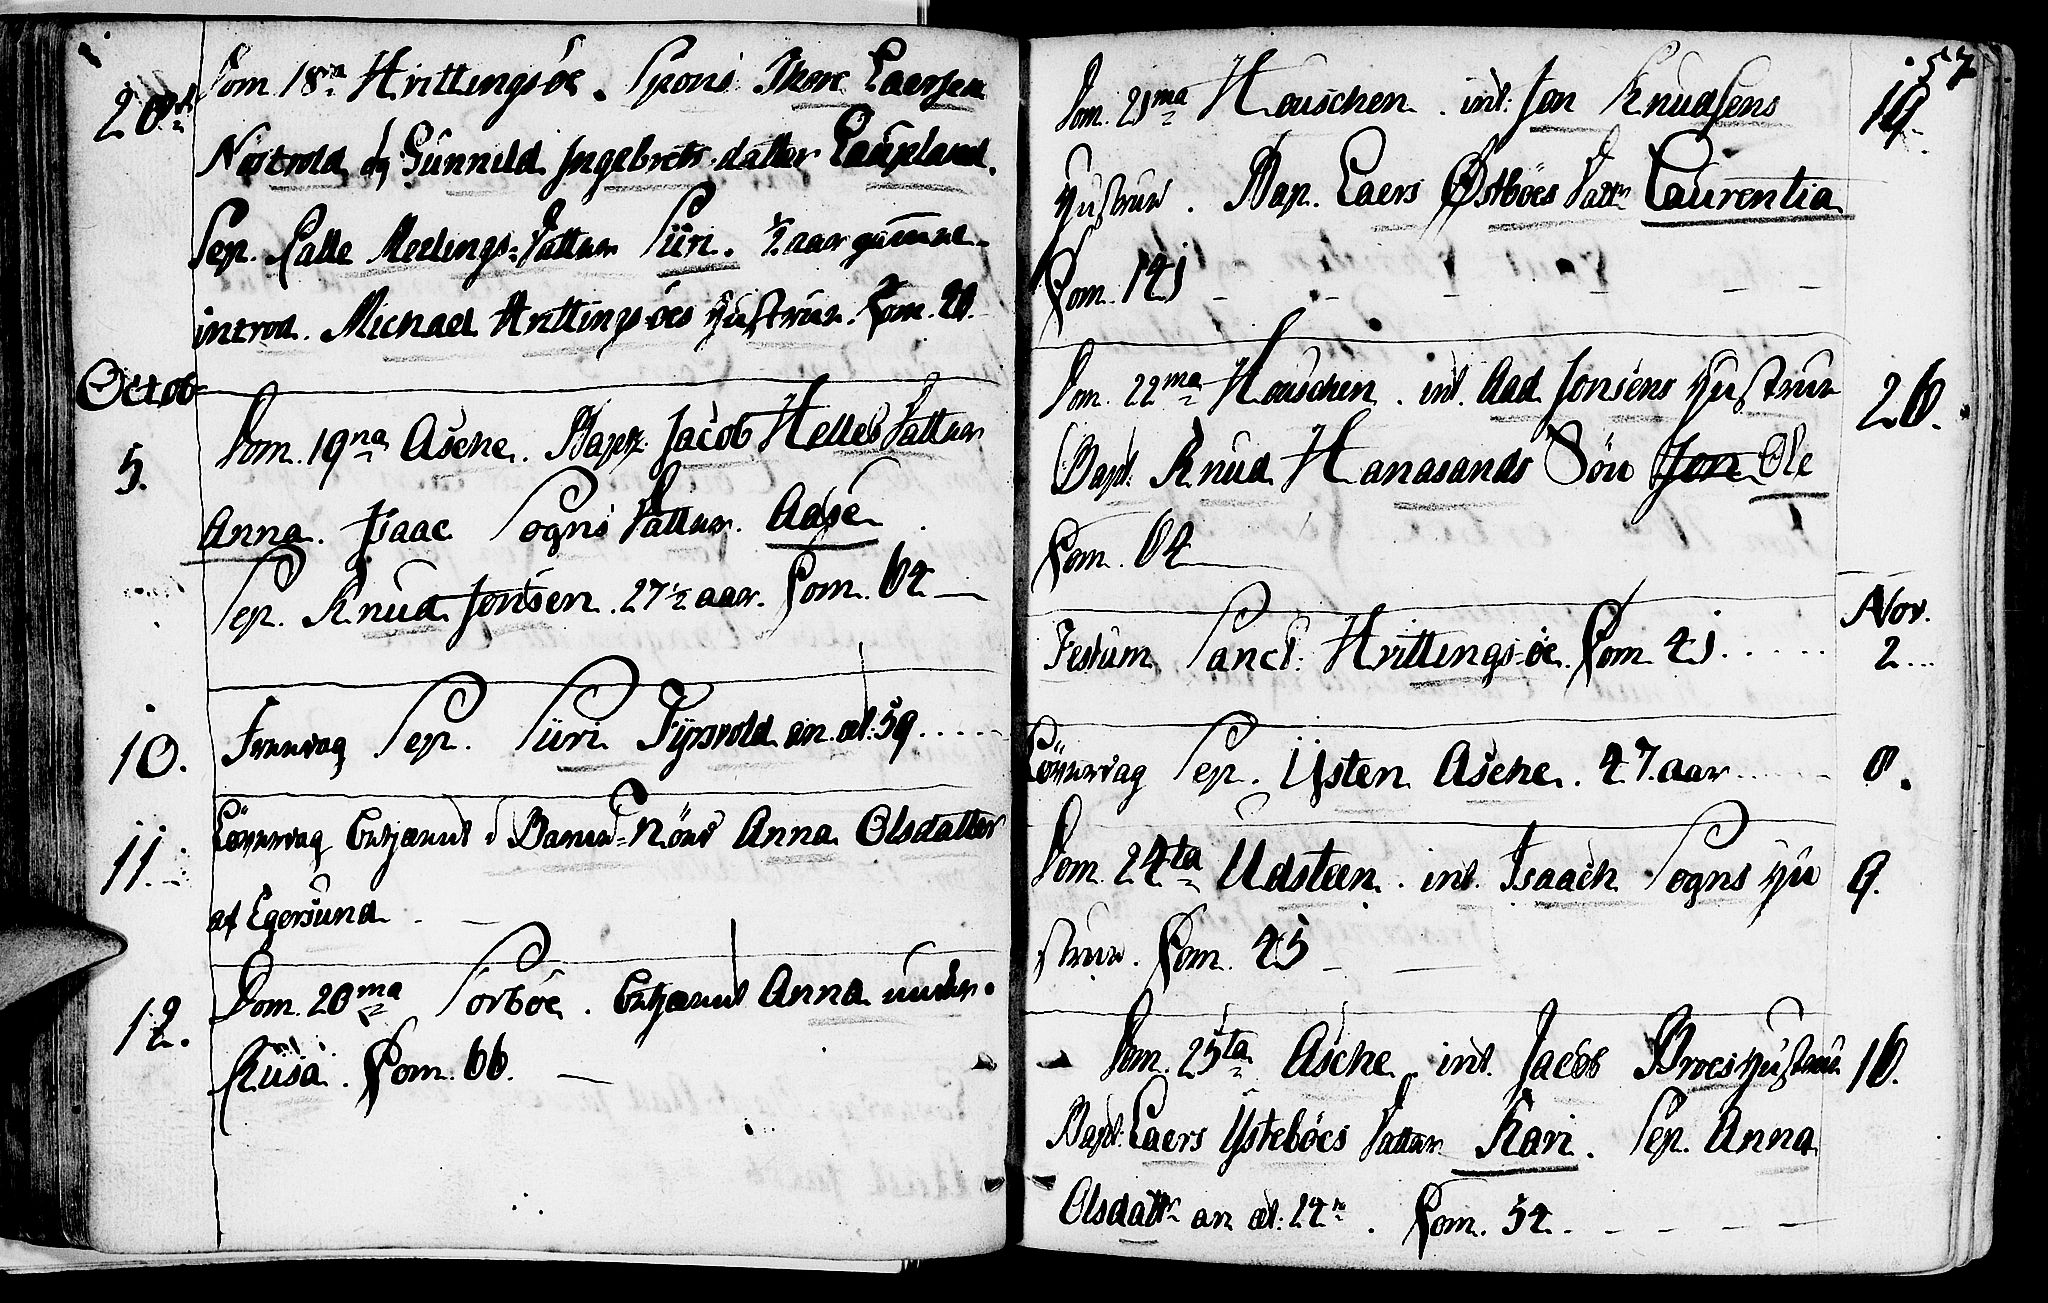 28.
Dom. 18na Hvittingsöe. Spons. Thore Laersen
Nortvold og Gunnild Ingebrets-datter Laupland.
Sep. Calle Meelings-Datter Siiri. ½ aar gammel
introd. Michael Hvittings-öes Hustrue. Com. 28.
Octob
5.
Dom. 19na Aschе. Bapt. Jacob Helles Datter
Anna. Isaac Sogns Datter. Aase
Sep. Knud Jonsen. 27½ aar. Com. 64
10.
Fredag Sep. Siiri an. æt: 59.....
11.
Löverdag i Barns-Nöd Anna Olsdatter
af Egersund
12.
Dom. 20ma Sorböe. Anna
Com. 66.
57
Dom. 21ma Houschen. int: Jon Knudsens
19.
Hustrue. Bap. Laers Östböes Datter Laurentia
Com. 141
Dom. 22ma Houschen. int. Aad Jonsens Hustrue
26.
Bapt. Knud Hanasands Sön Jon Ole
Com. 64
Nov.
Festum Sanct: Hvittings-öe. Com 41.....
2...
Löverdag Sep. Ysten Asche. 47. aar......
8.
Dom. 24ta Udsteen. int. Isaach Sogns Hu
9.
strue. Com. 45
Dom. 25ta Asche. int. Jacob Broes Hustrue
16.
Bapt: Laers Ysteböes Datter Kari. Sep. Anna
Olsdattr an æt: 24. Com. 54.